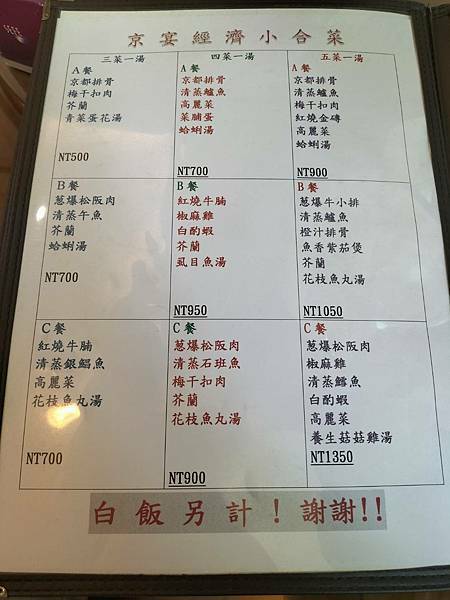 京宴經濟小合菜
三菜一湯
A 餐
京都排骨
梅干扣肉
芥蘭
青菜蛋花湯
NT500
四菜一湯
A 餐
京都排骨
清蒸鱸魚
高麗菜
菜脯蛋
蛤蜊湯
NT700
五菜一湯
A 餐
京都排骨
清蒸鱸魚
梅干扣肉
紅燒金磚
高麗菜
蛤蜊湯
NT900
B 餐
蔥爆松阪肉
清蒸午魚
芥蘭
蛤蜊湯
NT700
B 餐
紅燒牛腩
椒麻雞
白酌蝦
芥蘭
虱目魚湯
NT950
B 餐
蔥爆牛小排
清蒸鱸魚
橙汁排骨
魚香紫茄煲
芥蘭
花枝魚丸湯
NT1050
C 餐
紅燒牛腩
清蒸銀鯧魚
高麗菜
花枝魚丸湯
NT700
C 餐
蔥爆松阪肉
清蒸石斑魚
梅干扣肉
芥蘭
花枝魚丸湯
NT900
C 餐
蔥爆松阪肉
椒麻雞
清蒸鱈魚
白酌蝦
高麗菜
養生菇菇雞湯
NT1350
白飯另計！謝謝!!